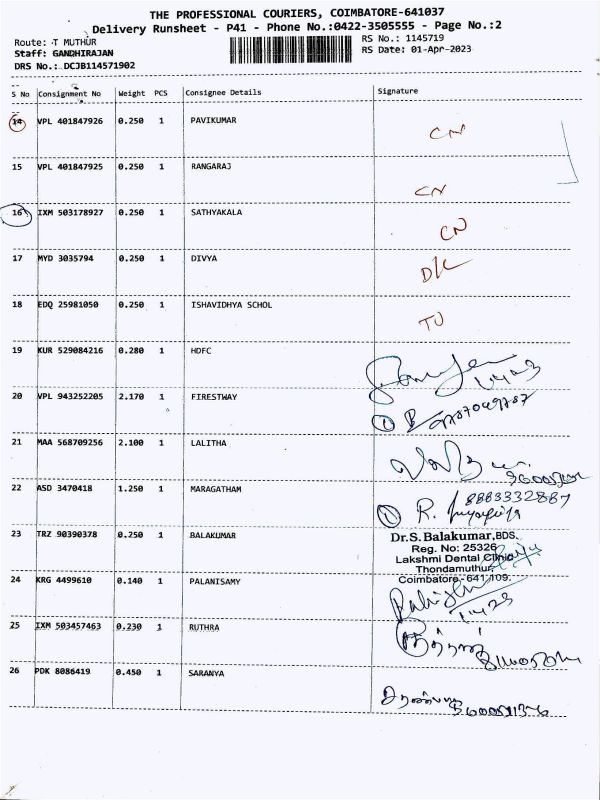 THE PROFESSIONAL COURIERS, COIMBATORE-641037
Delivery Runsheet - P41 - Phone No.:0422-3505555 - Page No.:2
Route: T MUTHUR RS No.: 1145719
Staff: GANDHIRAJAN RS Date: 01-Apr-2023
DRS No.: DCJB114571902
S No Consignment No Weight PCS Consignee Details Signature
14 VPL 401847926 0.250 1 PAVIKUMAR CN
15 VPL 401847925 0.250 1 RANGARAJ CN
16 IXM 503178927 0.250 1 SATHYAKALA CN
17 MYD 3035794 0.250 1 DIVYA D/L
18 EDQ 25981050 0.250 1 ISHAVIDHYA SCHOL TU
19 KUR 529084216 0.280 1 HDFC
20 VPL 943252205 2.170 1 FIRESTWAY
21 MAA 568709256 2.100 1 LALITHA
22 ASD 3470418 1.250 1 MARAGATHAM R. 8883332887
23 TRZ 90390378 0.250 1 BALAKUMAR
Dr.S. Balakumar,BDS.
Reg. No: 25326
Lakshmi Dental Clinic
Thondamuthur,
Coimbatore - 641 109.
24 KRG 4499610 0.140 1 PALANISAMY
25 IXM 503457463 0.230 1 RUTHRA
26 PDK 8086419 0.450 1 SARANYA